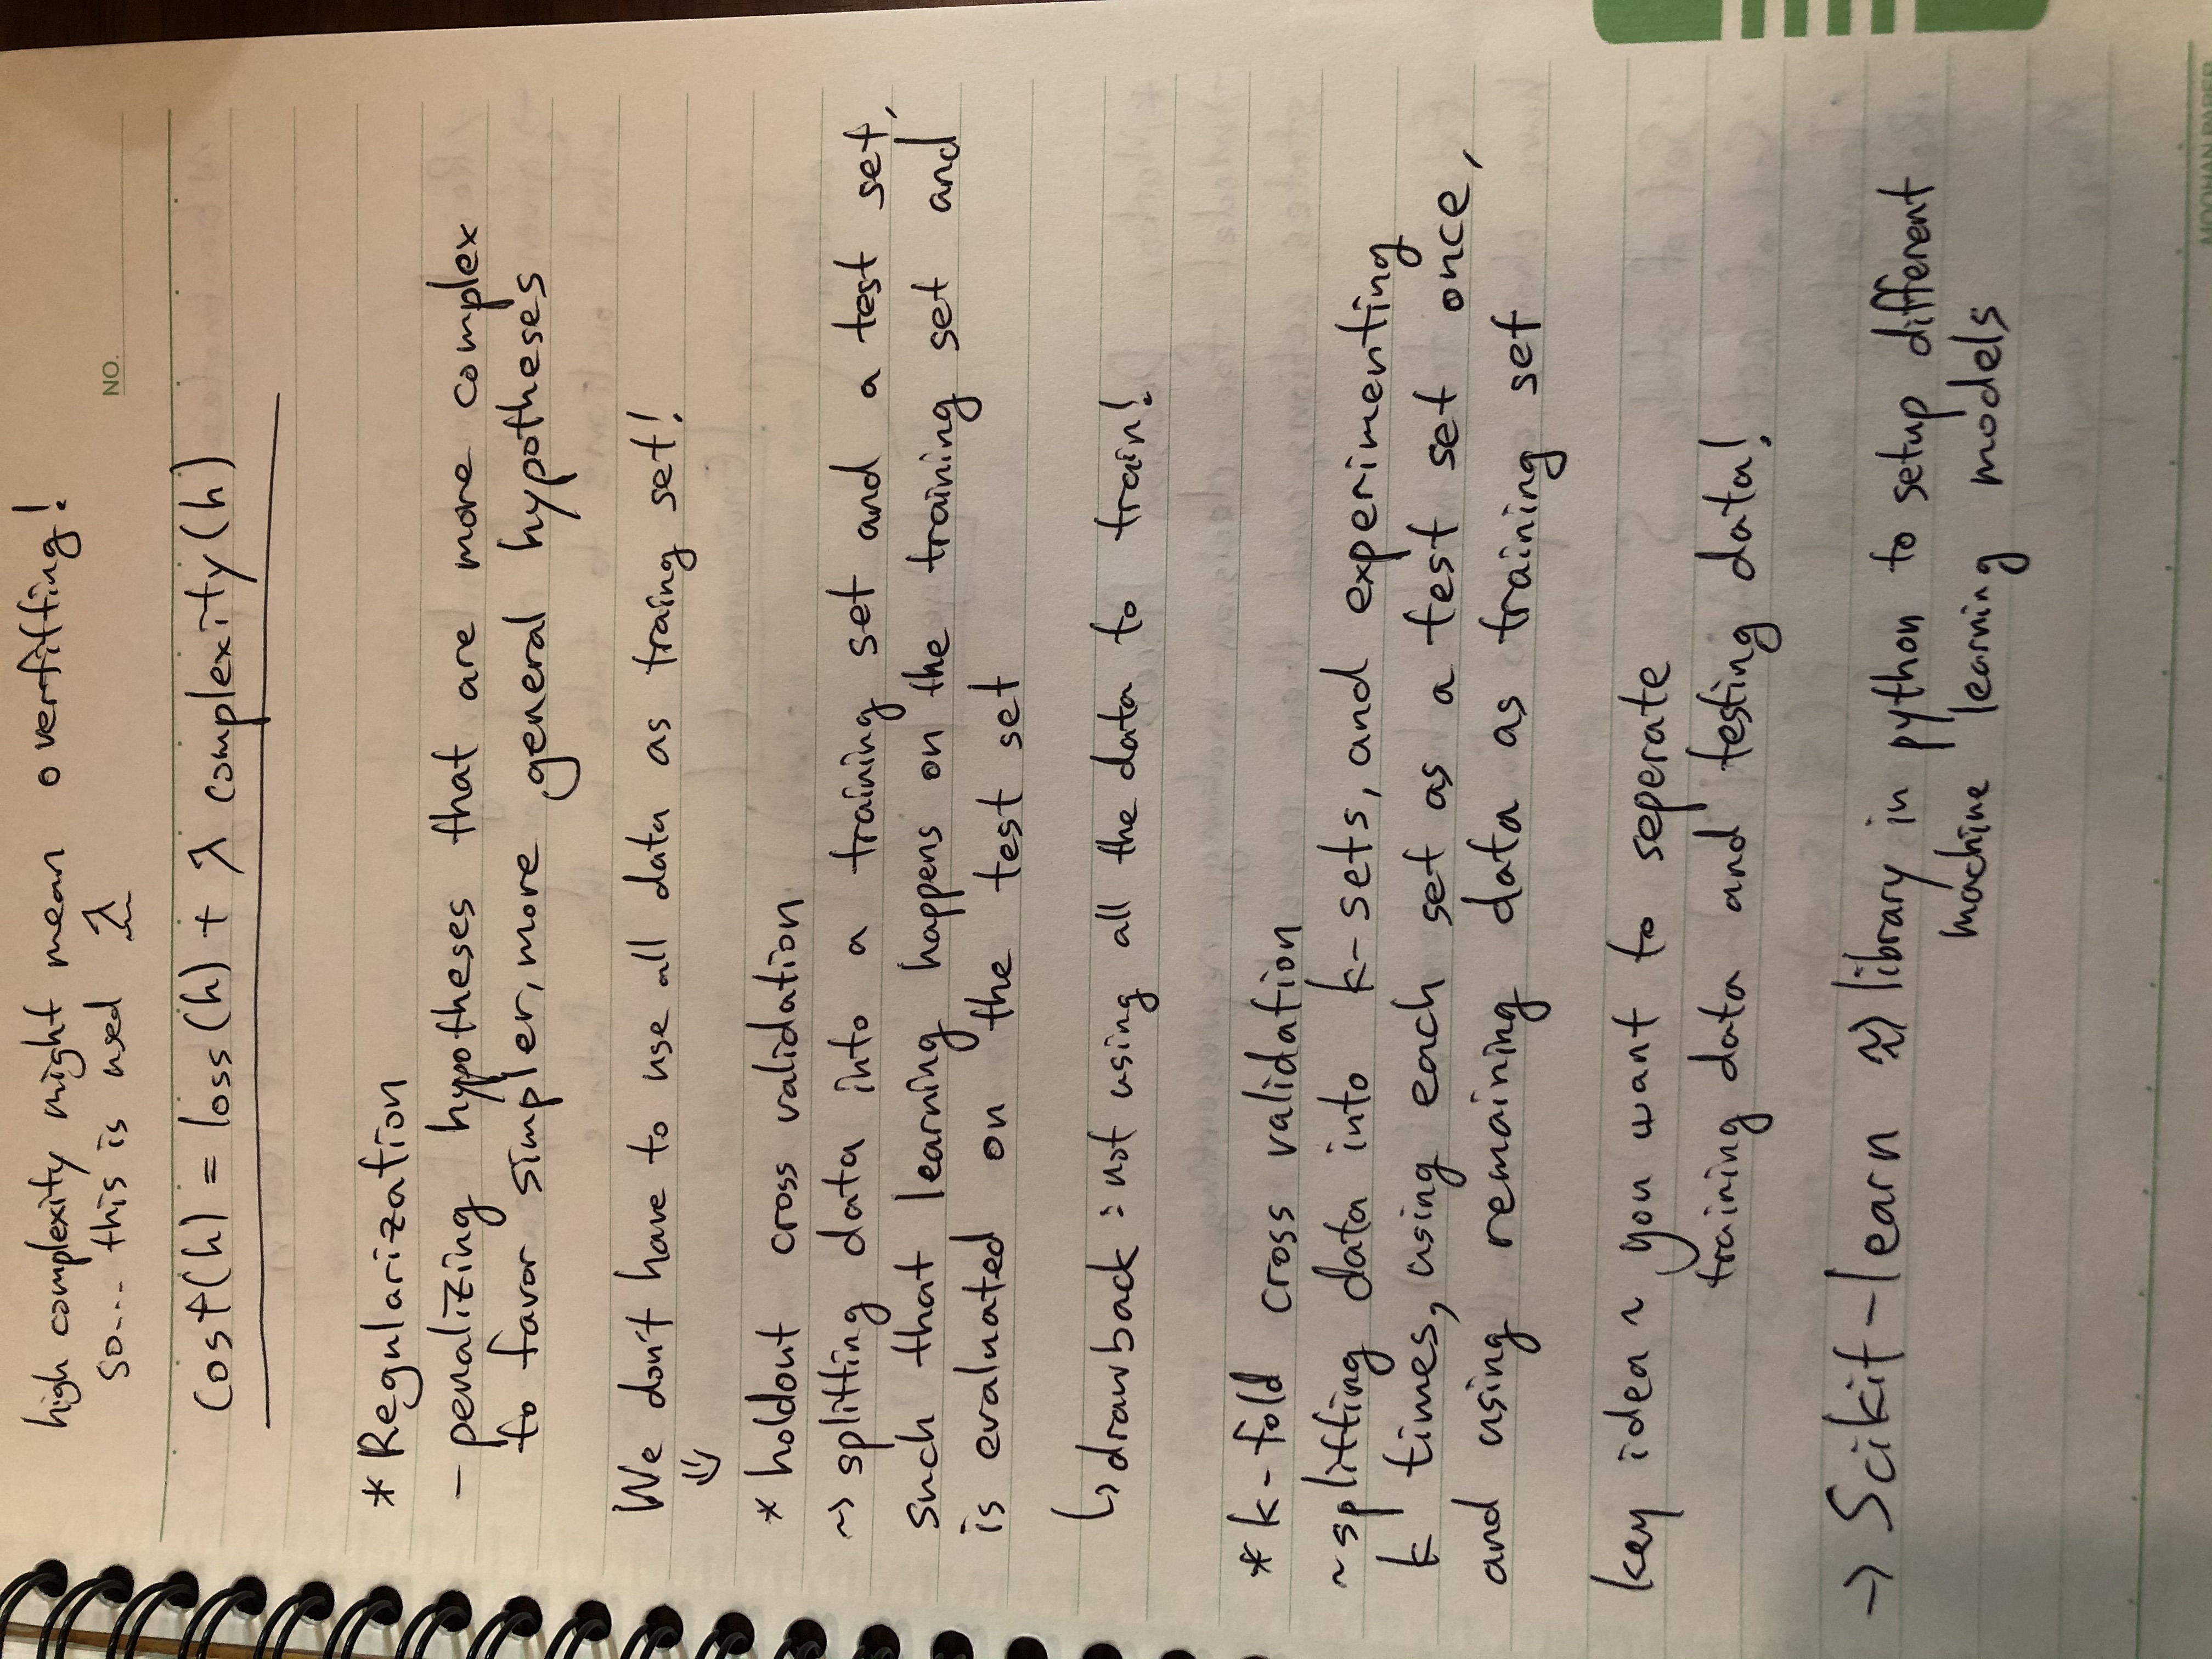 high complexity might mean overfitting!
so... this is used λ
NO.
cost(h) = loss(h) + λ complexity(h)
* Regularization
- penalizing hypotheses that are more complex
to favor simpler, more general hypotheses
We don't have to use all data as traing set!
* holdout cross validation
~> splitting data into a training set and a test set,
such that learning happens on the training set and
is evaluated on the test set
↳ drawback : not using all the data to train!
* k-fold cross validation
~ splitting data into k-sets, and experimenting
k times, using each set as a test set once,
and using remaining data as training set
key idea ~ you want to seperate
training data and testing data!
→ Scikit-learn ≈> library in python to setup different
machine learning models
MOOHAN PAPER